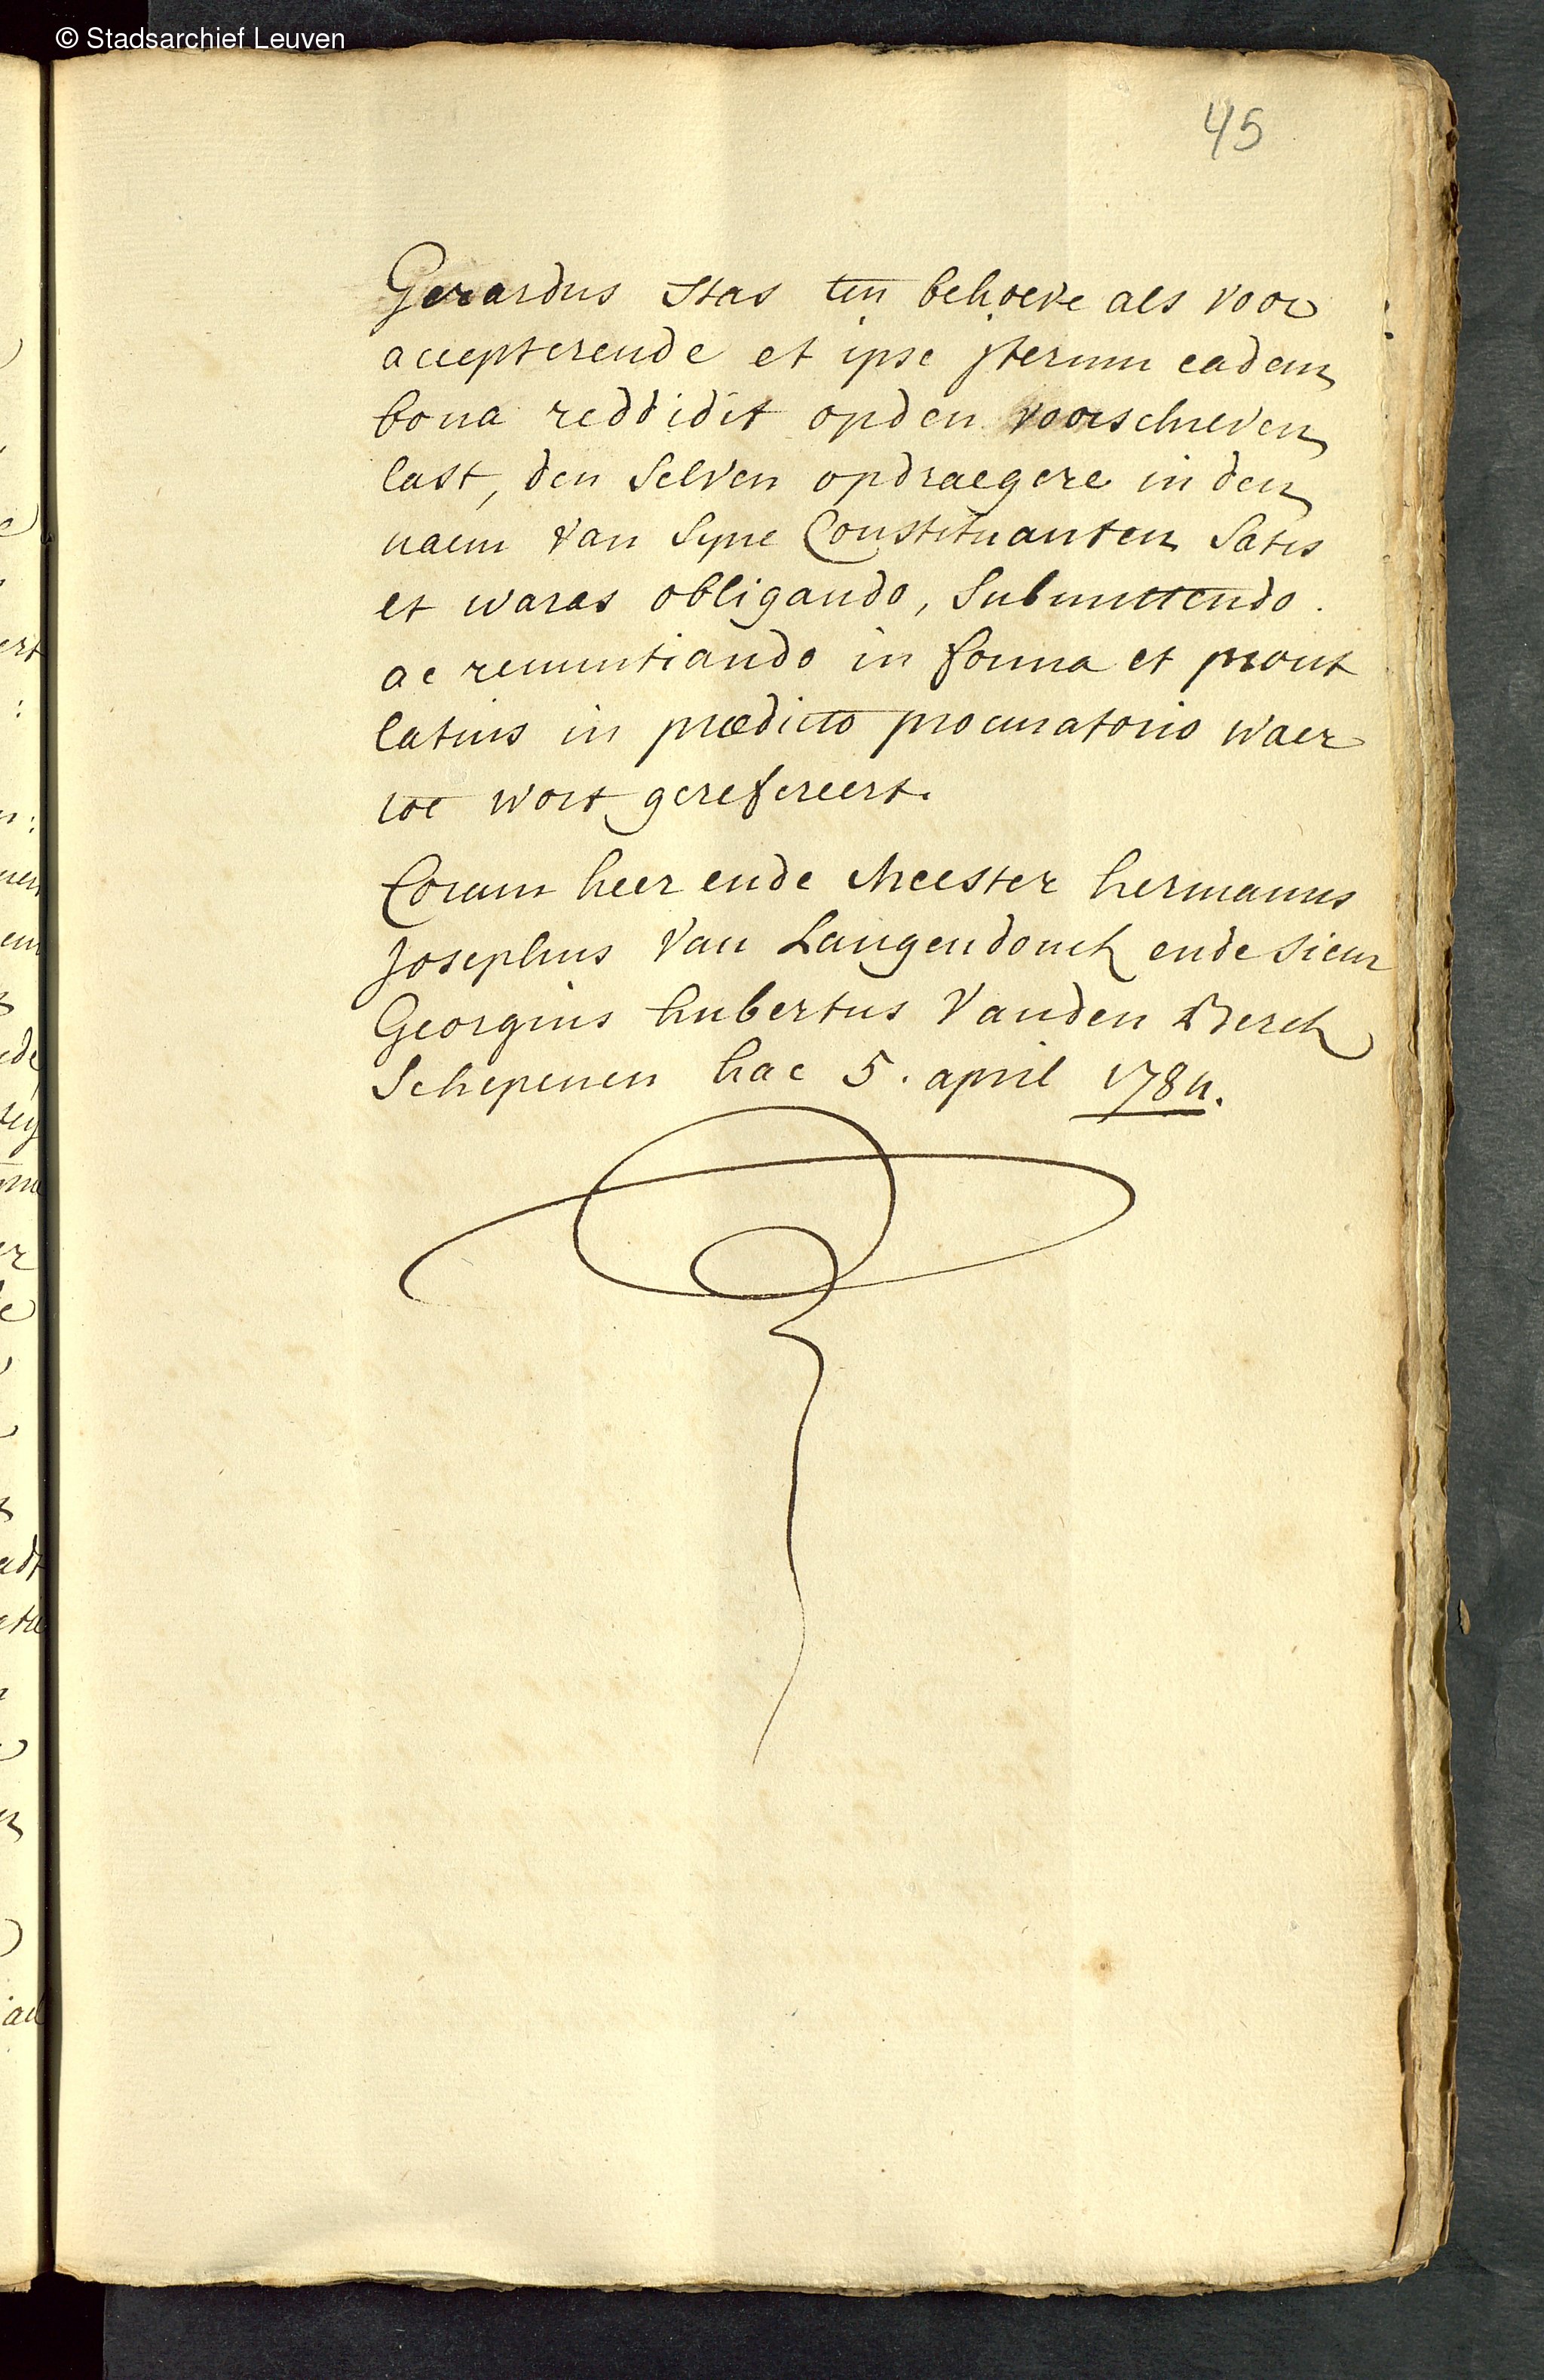 © Stadsarchief Leuven
45
Gerardus Stas ten behoeve als voor
accepterende et ipse jterum eadem
bona reddidit opden voorschreven
last, den selven opdraegere in den
naem van syne Constituanten satis
et waras obligando, submittendo.
ac renuntiando in forma et prout
latius in prædicto procuratorio waer
toe wort gerefereert.
Coram heer ende Meester hermanus
Josephus Van Langendonck ende sieur
Georgius hubertus Vanden Berch
Schepenen hac 5. april 1784.